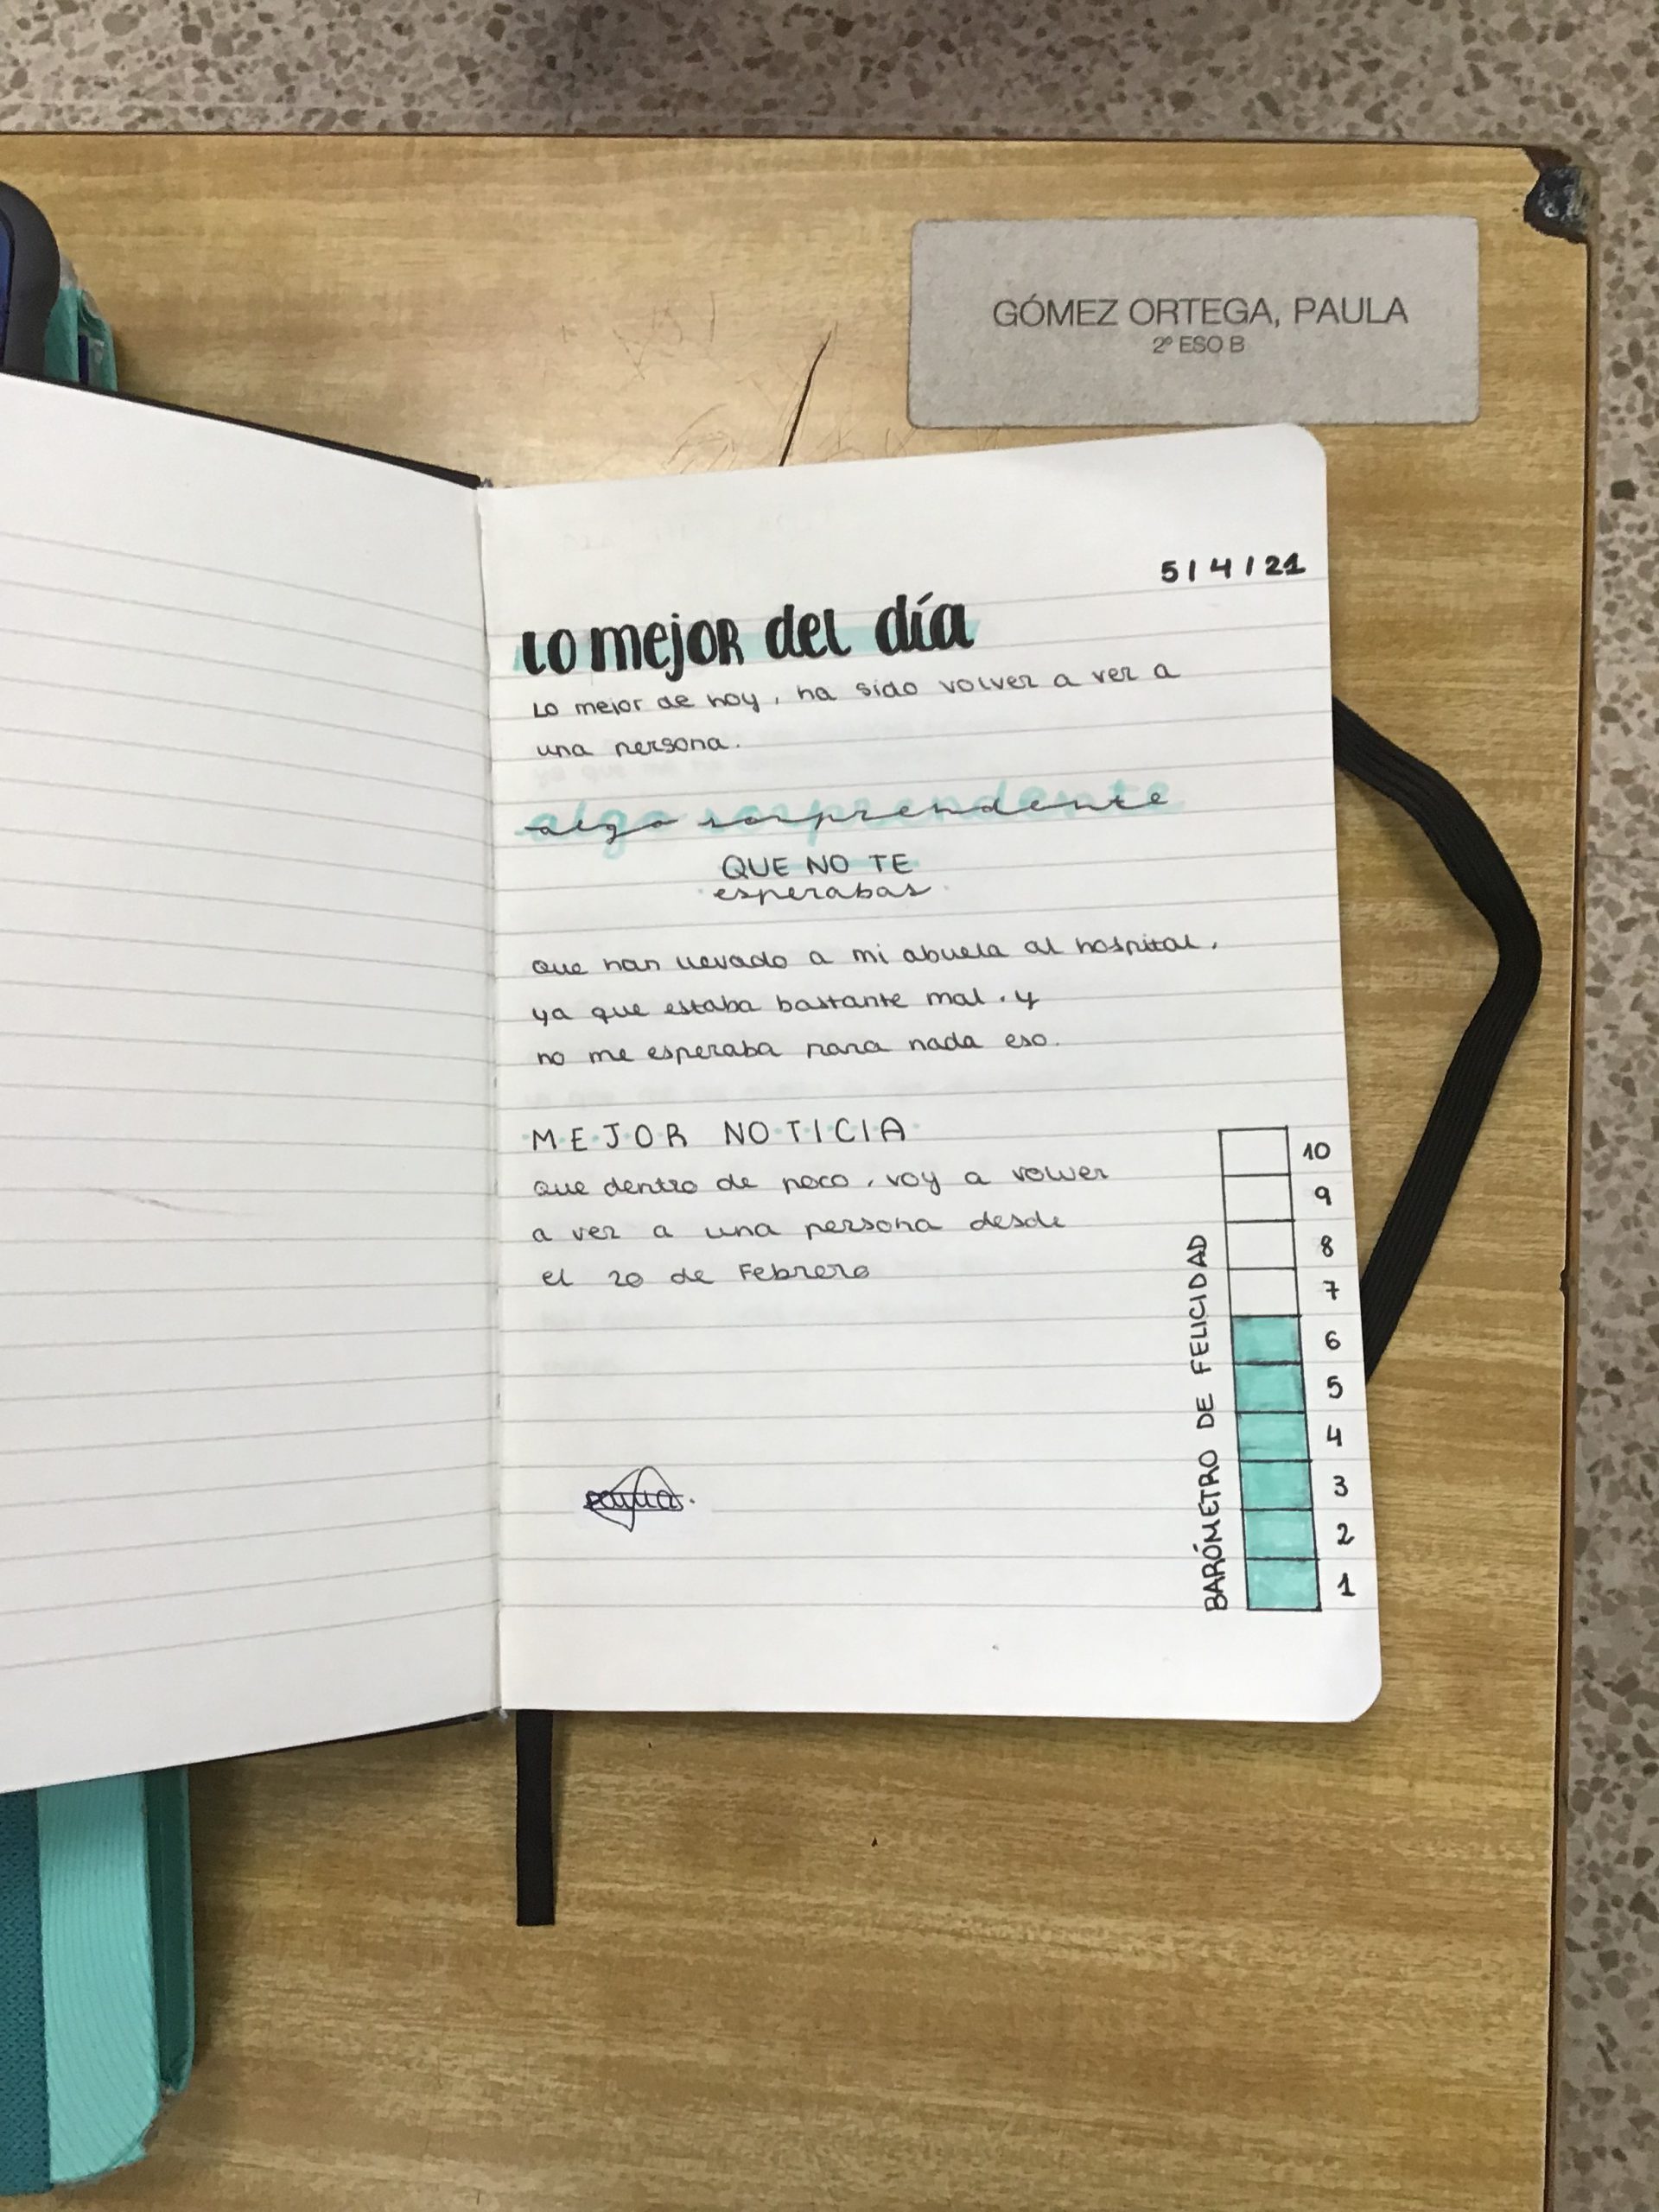 GÓMEZ ORTEGA, PAULA
2º ESO B
5/4/21
Lo mejor del día
Lo mejor de hoy, ha sido volver a ver a
una persona.
algo sorprendente
QUE NO TE
esperabas
Que han llevado a mi abuela al hospital,
ya que estaba bastante mal, y
no me esperaba para nada eso.
MEJOR NOTICIA
Que dentro de poco, voy a volver
a ver a una persona desde
el 20 de Febrero
BARÓMETRO DE FELICIDAD
10
9
8
7
6
5
4
3
2
1